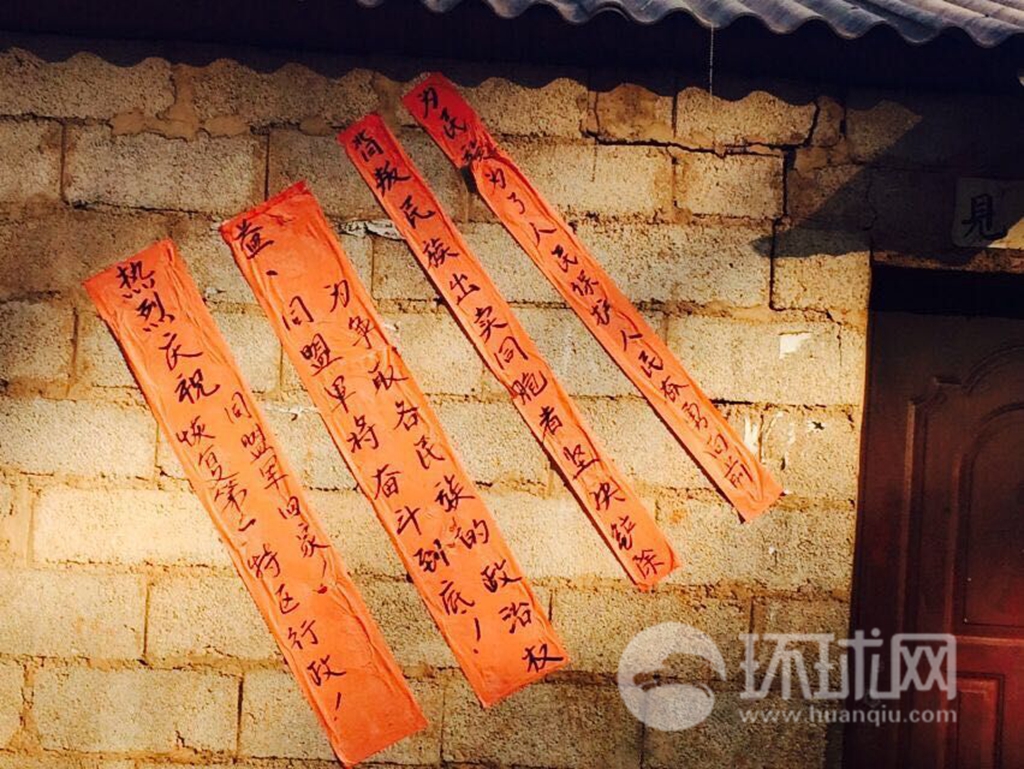 为民族为了人民保护人民奋勇向前
背叛民族出卖同胞者坚决铲除
为争取各民族的政治权
益、同盟军将奋斗到底！
热烈庆祝
同盟军回家！
恢复第一特区行政！
見
环球网
www.huanqiu.com